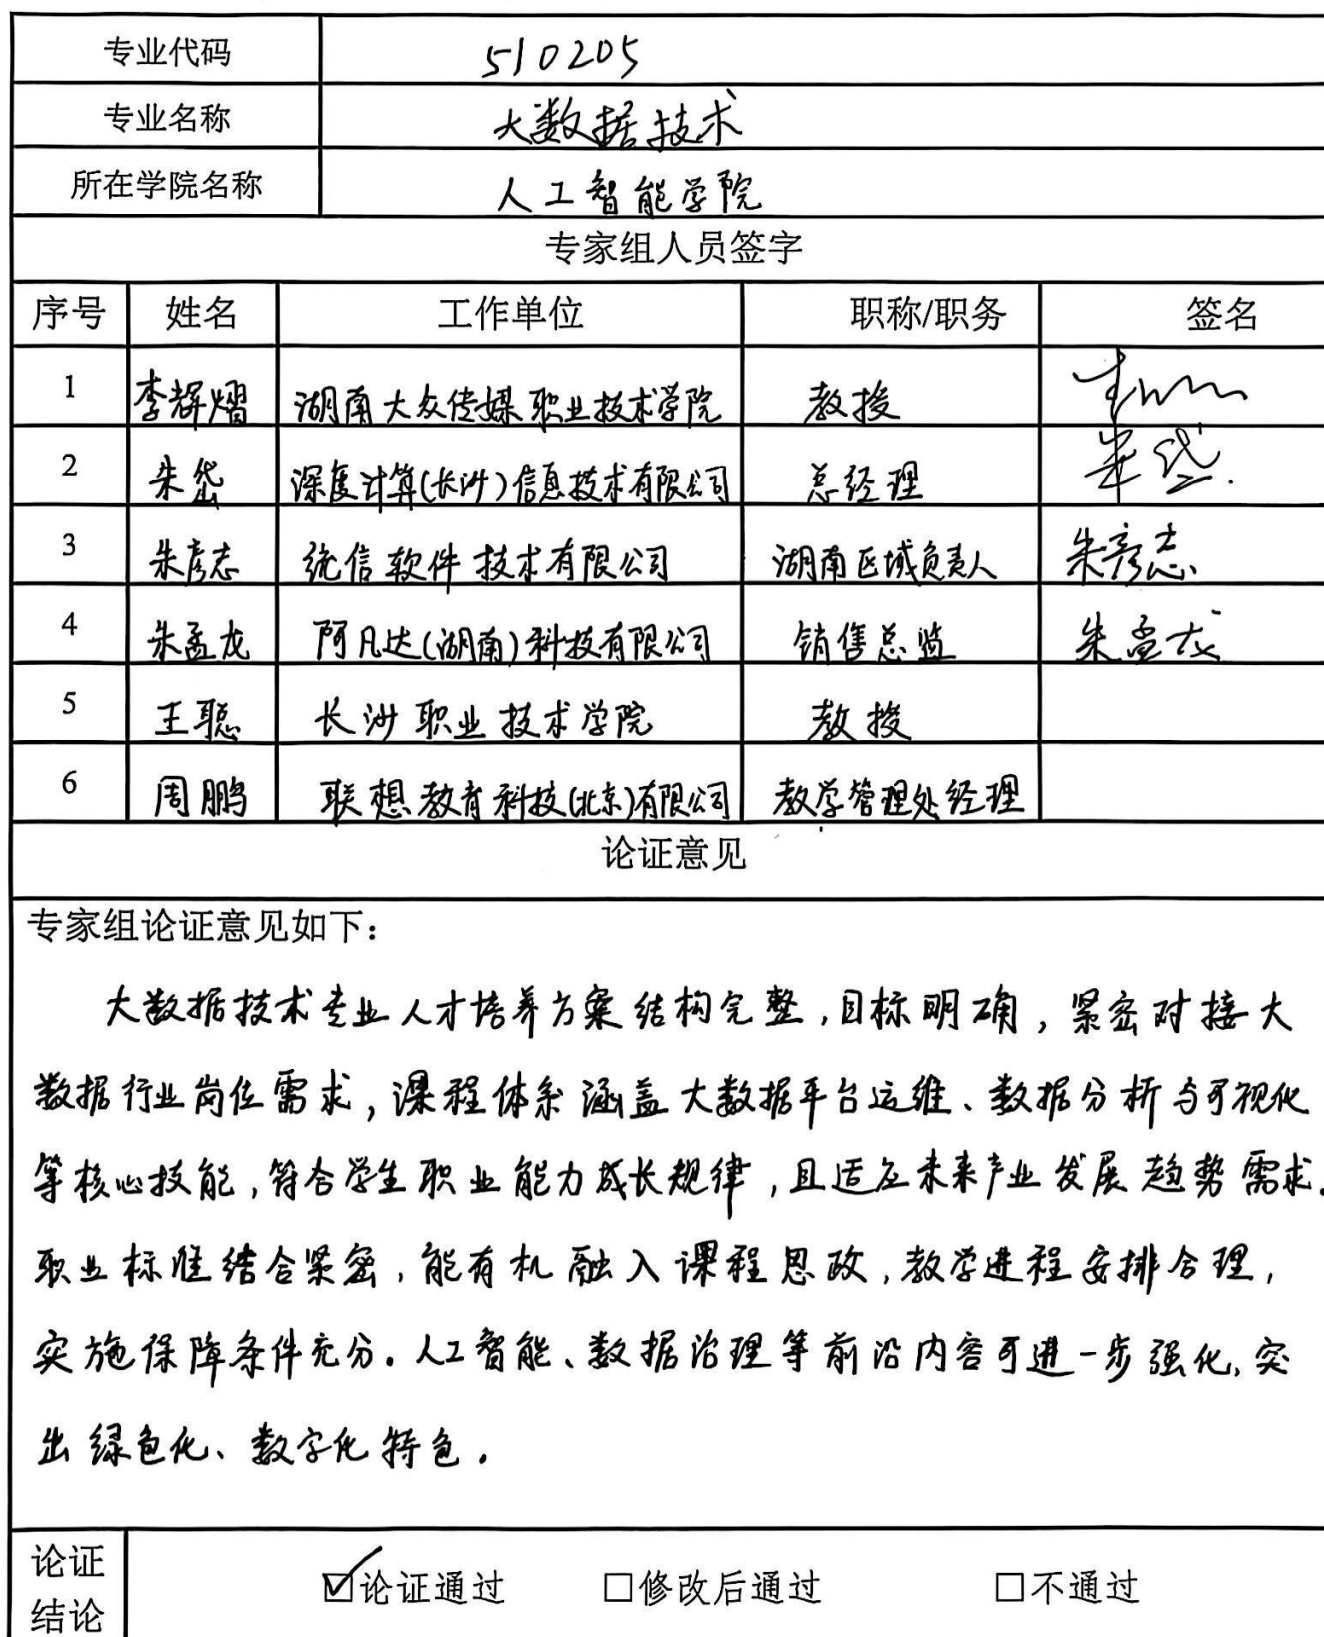 专业代码 510205
专业名称 大数据技术
所在学院名称 人工智能学院
专家组人员签字
序号 姓名 工作单位 职称/职务 签名
1 李辉熠 湖南大众传媒职业技术学院 教授
2 朱岱 深度计算(长沙)信息技术有限公司 总经理
3 朱彦志 统信软件技术有限公司 湖南区域负责人 朱彦志
4 朱孟龙 阿凡达(湖南)科技有限公司 销售总监 朱孟龙
5 王聪 长沙职业技术学院 教授
6 周鹏 联想教育科技(北京)有限公司 教学管理处经理
论证意见
专家组论证意见如下:
大数据技术专业人才培养方案结构完整,目标明确,紧密对接大
数据行业岗位需求,课程体系涵盖大数据平台运维、数据分析与可视化
等核心技能,符合学生职业能力成长规律,且适应未来产业发展趋势需求。
职业标准结合紧密,能有机融入课程思政,教学进程安排合理,
实施保障条件充分。人工智能、数据治理等前沿内容可进一步强化,突
出绿色化、数字化特色。
论证 ☑论证通过 □修改后通过 □不通过
结论